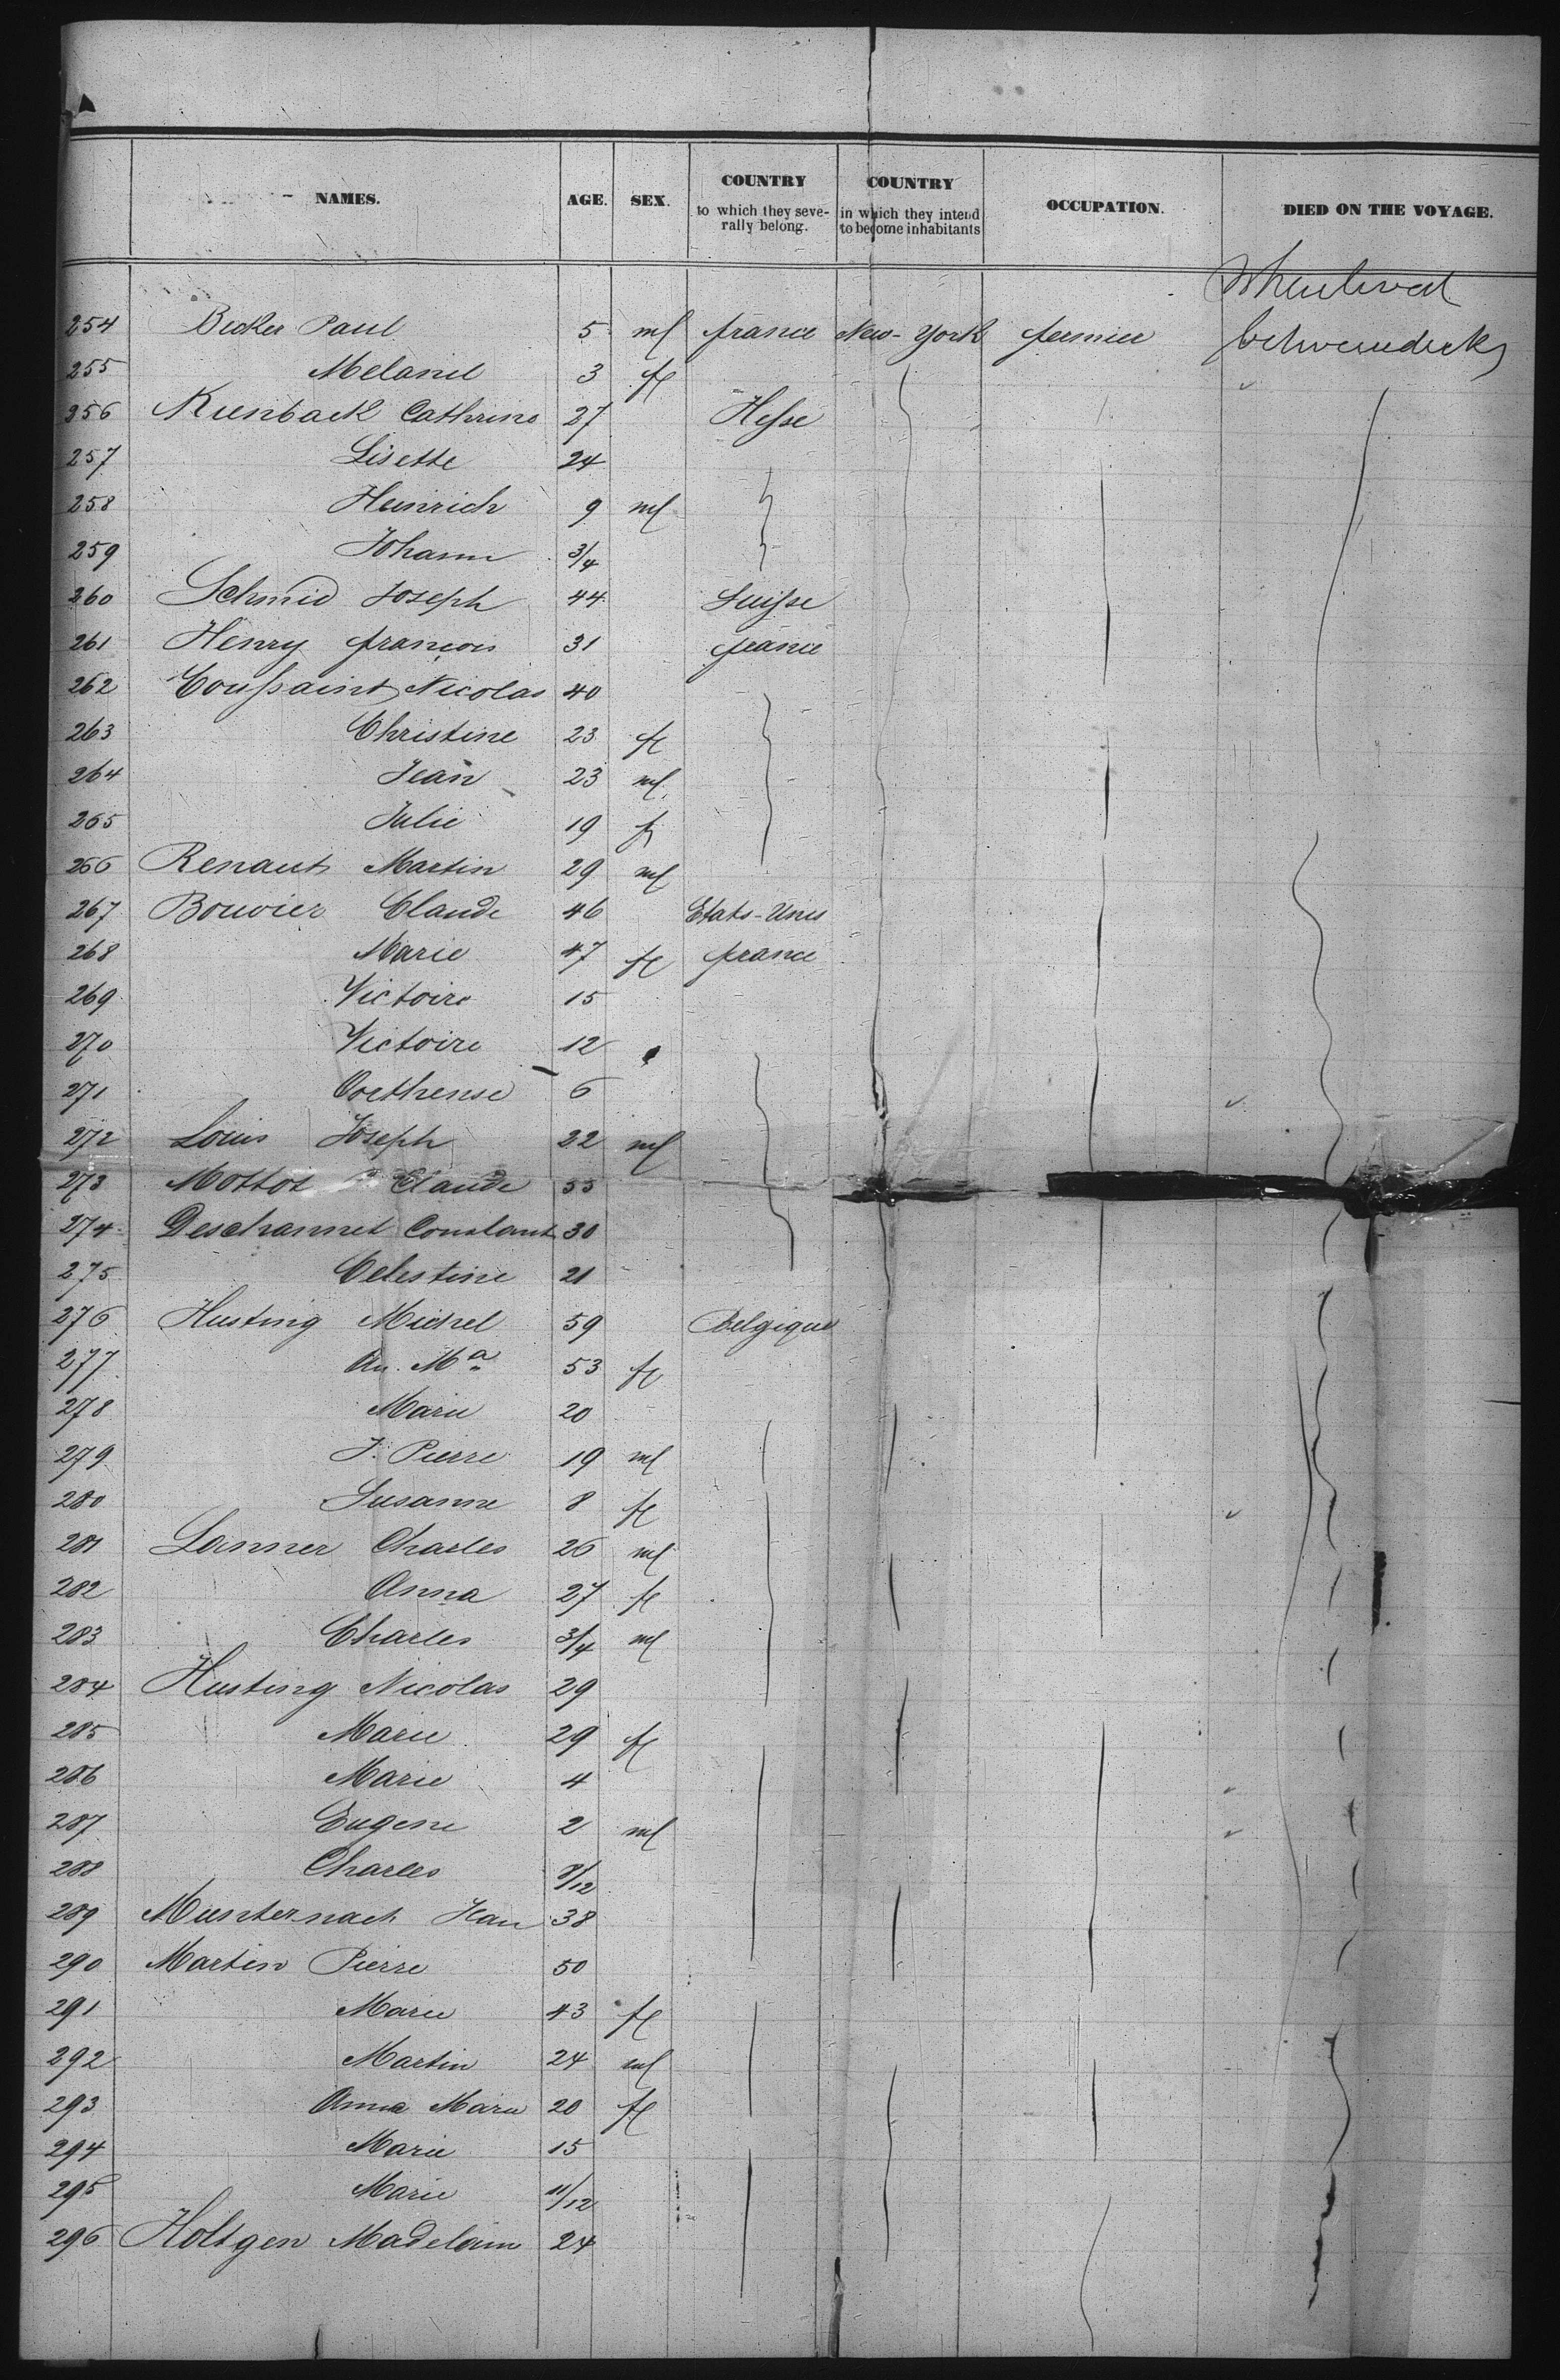 NAMES. AGE. SEX. COUNTRY to which they seve- rally belong. COUNTRY in which they intend to become inhabitants OCCUPATION. DIED ON THE VOYAGE.
254 Becker Paul 5 ml france New-York fermier betweendecks
255 Melanie 3 fe
256 Kienback Cathrine 27 Hesse
257 Lisette 24
258 Heinrich 9 ml
259 Johann 3/4
260 Schmid Joseph 44 Suisse
261 Henry françois 31 france
262 Toussaint Nicolas 40
263 Christine 23 fe
264 Jean 23 ml
265 Julie 19 fe
266 Renaut Martin 29 ml
267 Bouvier Claude 46 Etats-Unis
268 Marie 47 fe france
269 Victoire 15
270 Victoire 12
271 Orthense 6
272 Louis Joseph 22 ml
273 Mottot Claude 55
274 Deschannet Constant 30
275 Celestine 21
276 Husting Michel 59 Belgique
277 An. Ma 53 fe
278 Marie 20
279 J. Pierre 19 ml
280 Susanne 8 fe
281 Lanner Charles 26 ml
282 Anna 27 fe
283 Charles 3/4 ml
284 Husting Nicolas 29
285 Marie 29 fe
286 Marie 4
287 Eugene 2 ml
288 Charles 9/12
289 Munternach Jean 38
290 Martin Pierre 50
291 Marie 43 fe
292 Martin 24 ml
293 Anna Marie 20 fe
294 Marie 15
295 Marie 11/12
296 Holtgen Madelain 24